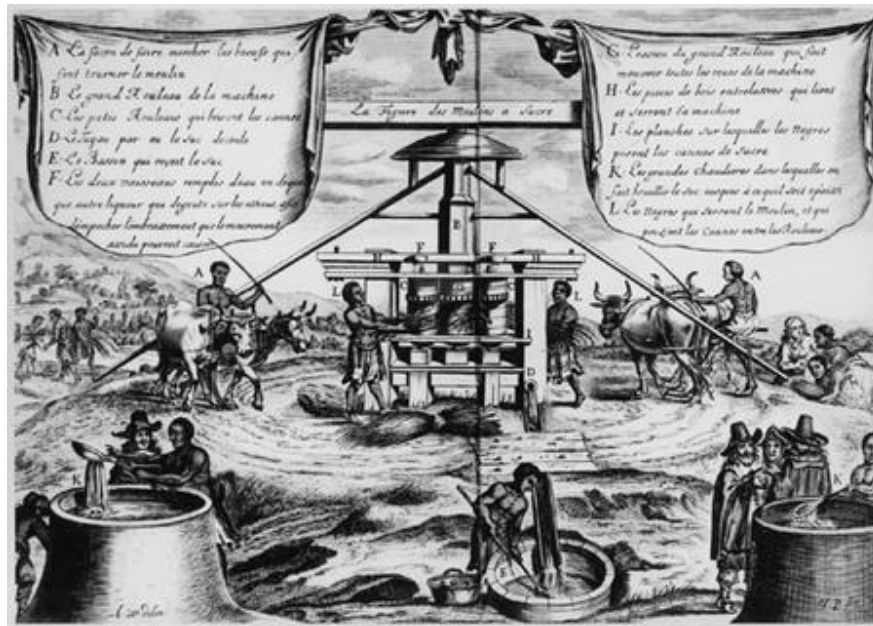 A. La façon de faire marcher les boeufs qui
font tourner le moulin
B. Le grand Rouleau de la machine
C. Les petits Rouleaux qui brisent les cannes
D. Le Tuyau par ou le suc decoule
E. Le Bassin qui reçoit le suc
F. Les deux vaisseaux remplis d'eau ou de quel
que autre liqueur qui degoute sur les
d'empecher l'embrasement que le mouvement
rapide pourroit causer
La Figure des Moulins a Sucre
G. L'essieu du grand Rouleau qui fait
mouvoir toutes les roues de la machine
H. Les pieces de bois entrelassees qui lient
et serrent la machine
I. Les planches sur lesquelles les Negres
posent les cannes de sucre
K. Les grandes chaudieres dans lesquelles on
fait bouillir le suc jusques a ce quil soit epaissi
L. Les Negres qui servent le Moulin, et qui
poussent les Cannes entre les Rouleaux
B
F
F
H
H
C
C
A
L
L
A
I
D
K
K
E